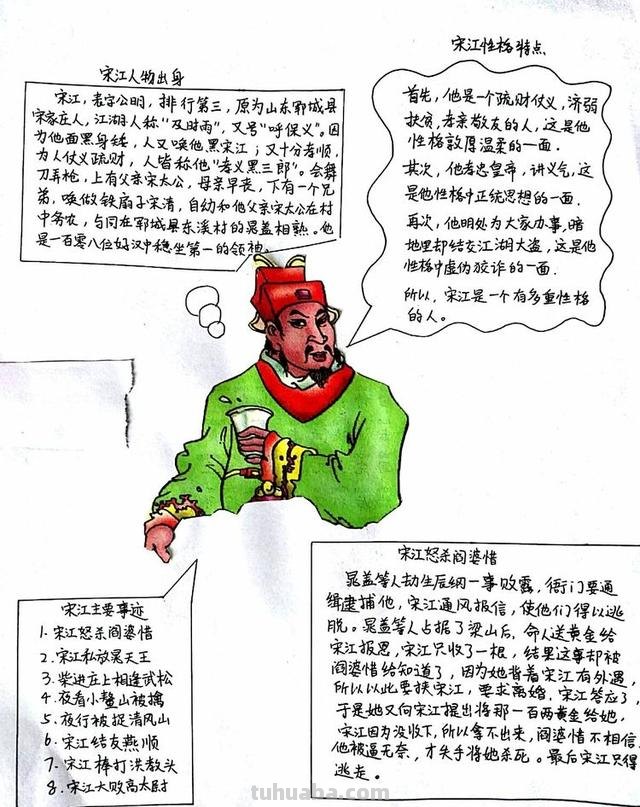 宋江人物出身
宋江，表字公明，排行第三，原为山东郓城县
宋家庄人，江湖人称“及时雨”，又号“呼保义”。因
为他面黑身矮，人又唤他黑宋江；又十分孝顺，
为人仗义疏财，人皆称他“孝义黑三郎”。会舞
刀弄枪，上有父亲宋太公，母亲早丧，下有一个兄
弟，唤做铁扇子宋清，自幼和他父亲宋太公在村
中务农，与同在郓城县东溪村的晁盖相熟。他
是一百零八位好汉中稳坐第一的领袖。
宋江性格特点
首先，他是一个疏财仗义，济弱
扶贫，孝亲敬友的人，这是他
性格敦厚温柔的一面．
其次，他孝忠皇帝，讲义气，这
是他性格中正统思想的一面．
再次，他明处为大家办事，暗
地里却结交江湖大盗，这是他
性格中虚伪狡诈的一面．
所以，宋江是一个有多重性格
的人。
宋江主要事迹
1、宋江怒杀阎婆惜
2、宋江私放晁天王
3、柴进庄上相逢武松
4、夜看小鳌山被擒
5、夜行被捉清风山
6、宋江结友燕顺
7、宋江棒打洪教头
8、宋江大败高太尉
宋江怒杀阎婆惜
晁盖等人劫生辰纲一事败露，衙门要通
缉逮捕他，宋江通风报信，使他们得以逃
脱。晁盖等人占据了梁山后，命人送黄金给
宋江报恩，宋江只收了一根，结果这事却被
阎婆惜给知道了，因为她背着宋江有外遇，
所以以此要挟宋江，要求离婚．宋江答应了，
于是她又向宋江提出将那一百两黄金给她，
宋江因为没收下，所以拿不出来，阎婆惜不相信，
他被逼无奈，才失手将她杀死。最后宋江只得
逃走。
tuhuaba.com